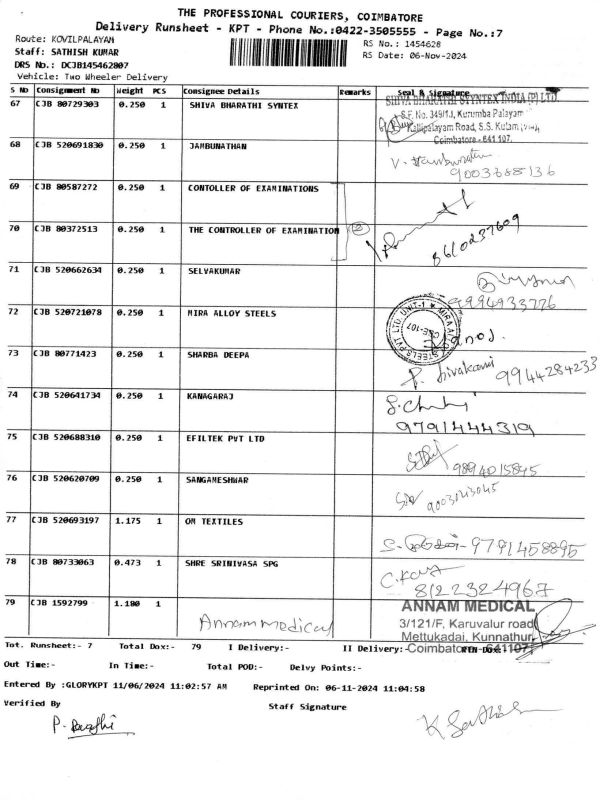 THE PROFESSIONAL COURIERS, COIMBATORE
Delivery Runsheet - KPT - Phone No.:0422-3505555 - Page No.:7
Route: KOVILPALAYAM
RS No.: 1454628
Staff: SATHISH KUMAR
RS Date: 06-Nov-2024
DRS No.: DCJB145462807
Vehicle: Two Wheeler Delivery
S No Consignment No Weight PCS Consignee Details Remarks Seal & Signature
67 CJB 80729303 0.250 1 SHIVA BHARATHI SYNTEX
SHIVA BHARATHI SYNTEX INDIA (P) LTD.
S.F. No. 349/1J, Kurumba Palayam
Kallipalayam Road, S.S. Kulam
Coimbatore - 641 107.
68 CJB 520691830 0.250 1 JAMBUNATHAN
9003688136
69 CJB 80587272 0.250 1 CONTOLLER OF EXAMINATIONS
70 CJB 80372513 0.250 1 THE CONTROLLER OF EXAMINATION 2
8610237609
71 CJB 520662634 0.250 1 SELVAKUMAR
9994933776
72 CJB 520721078 0.250 1 MIRA ALLOY STEELS
73 CJB 80771423 0.250 1 SHARBA DEEPA
P. Sivakami 9944284233
74 CJB 520641734 0.250 1 KANAGARAJ
9791444319
75 CJB 520688310 0.250 1 EFILTEK PVT LTD
9894015845
76 CJB 520620709 0.250 1 SANGAMESHWAR
77 CJB 520693197 1.175 1 OM TEXTILES
9791458895
78 CJB 80733063 0.473 1 SHRE SRINIVASA SPG
8122324967
79 CJB 1592799 1.180 1
Annam medical
ANNAM MEDICAL
3/121/F, Karuvalur road
Mettukadai, Kunnathur
Coimbatore - 641107
Tot. Runsheet:- 7 Total Dox:- 79 I Delivery:- II Delivery:-
Out Time:- In Time:- Total POD:- Delvy Points:-
Entered By :GLORYKPT 11/06/2024 11:02:57 AM Reprinted On: 06-11-2024 11:04:58
Verified By
Staff Signature